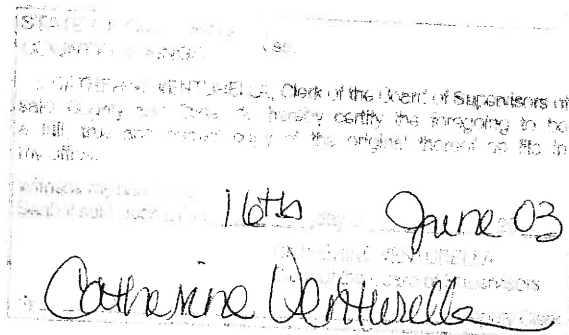 STATE OF
COUNTY OF KINGS ) ss.
I, CATHERINE VENTURELLA, Clerk of the Board of Supervisors of
said County and State do hereby certify the foregoing to be
a full, true and correct copy of the original thereof on file in
my office.
witness my hand
Seal of said Board of
16th June 03
CATHERINE VENTURELLA
Clerk of the Board of Supervisors
Catherine Venturella
By Deputy Clerk